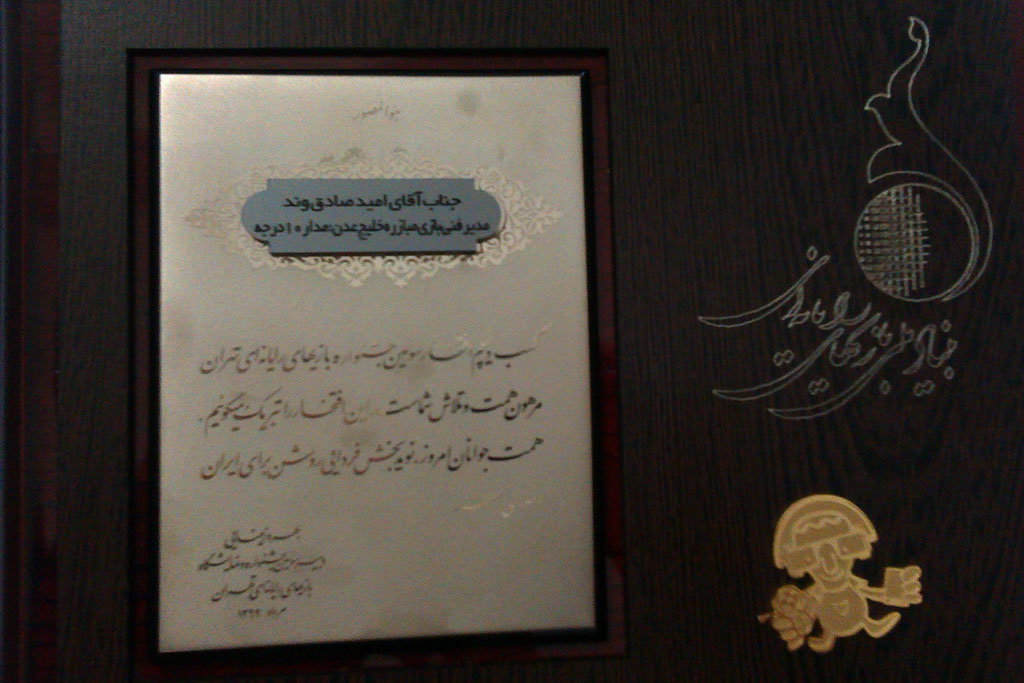 هوالمصور
جناب آقای امید صادق وند
مدیر فنی بازی مبارزه خلیج عدن؛ مدار ۱۰ درجه
کسب دیپلم افتخار سومین جشنواره بازیهای رایانه‌ای تهران
مرهون همت و تلاش شماست. این افتخار را تبریک میگوئیم.
همت جوانان امروز، نویدبخش فردایی روشن برای ایران
دبیر سومین جشنواره و نمایشگاه
بازیهای رایانه‌ای تهران
بنیاد ملی بازیهای رایانه‌ای